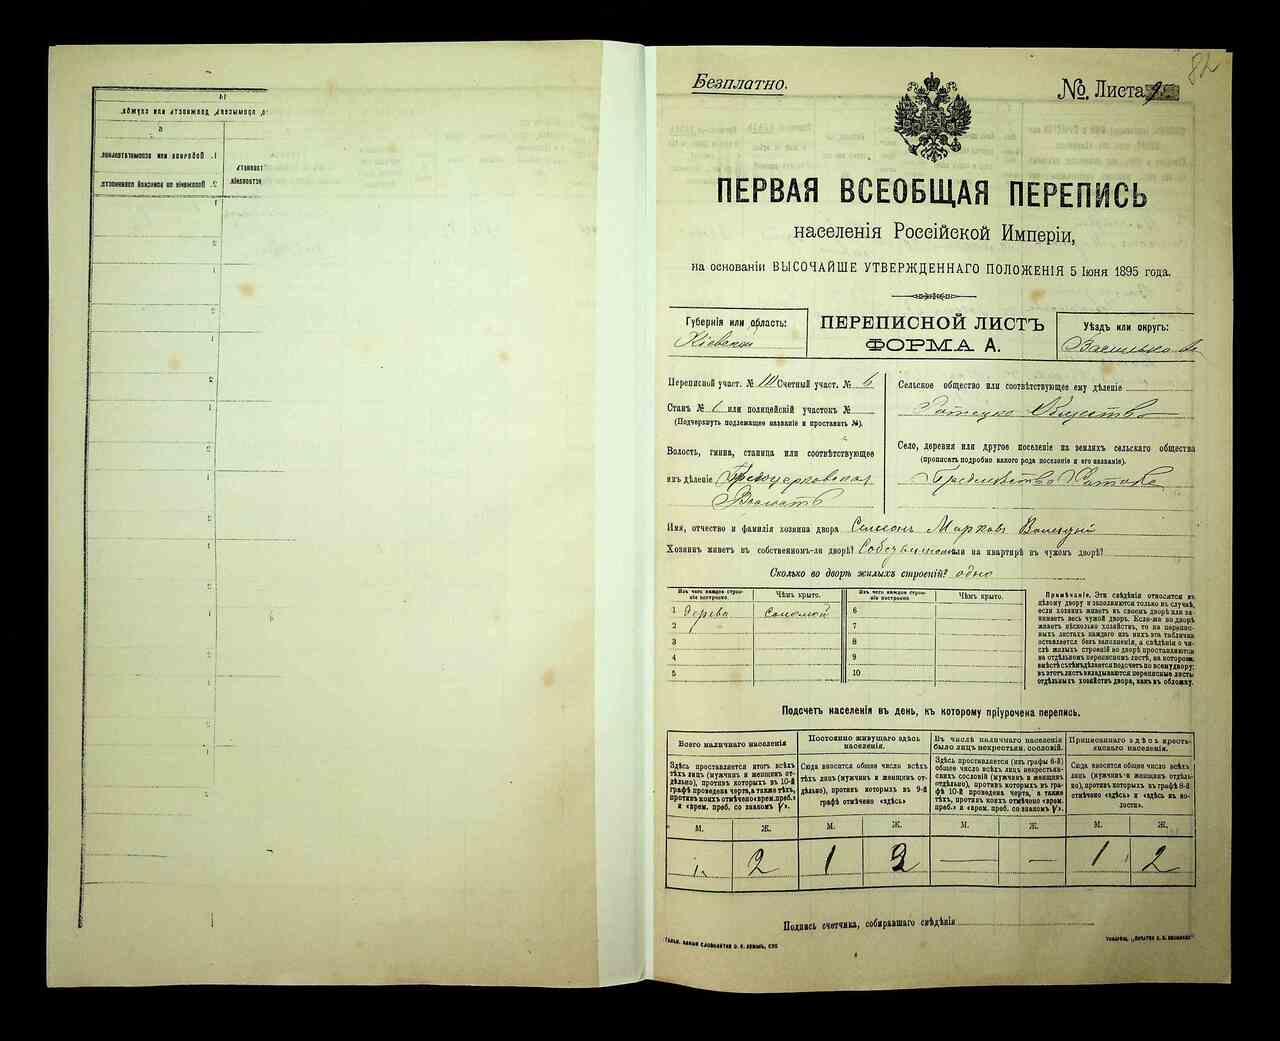 82
Безплатно.
№ Листа 9
ПЕРВАЯ ВСЕОБЩАЯ ПЕРЕПИСЬ
населенія Россійской Имперіи,
на основаніи ВЫСОЧАЙШЕ УТВЕРЖДЕННАГО ПОЛОЖЕНІЯ 5 Іюня 1895 года.
Губернія или область:
Кіевская
ПЕРЕПИСНОЙ ЛИСТЪ
ФОРМА А.
Уѣздъ или округъ:
Переписной участ. № III Счетный участ. № 6
Станъ № 1 или полицейскій участокъ №
(Подчеркнуть подлежащее названіе и проставить №).
Волость, гмина, станица или соотвѣтствующее
имъ дѣленіе
Волость
Сельское общество или соотвѣтствующее ему дѣленіе
Общество
Село, деревня или другое поселеніе на земляхъ сельскаго общества
(прописать подробно какого рода поселеніе и его названіе).
Имя, отчество и фамилія хозяина двора Семенъ Марковъ
Хозяинъ живетъ въ собственномъ-ли дворѣ? или на квартирѣ въ чужомъ дворѣ?
Сколько во дворѣ жилыхъ строеній? одно
Изъ чего каждое строеніе построено.
Чѣмъ крыто.
Изъ чего каждое строеніе построено.
Чѣмъ крыто.
1 дерева соломой 6
2 7
3 8
4 9
5 10
Примѣчаніе. Эти свѣдѣнія относятся къ
цѣлому двору и заполняются только въ случаѣ,
если хозяинъ живетъ въ своемъ дворѣ или занимаетъ
весь чужой дворъ. Если-же во дворѣ
живетъ нѣсколько хозяйствъ, то на переписныхъ
листахъ каждаго изъ нихъ эта табличка
оставляется безъ заполненія, а свѣдѣнія о числѣ
жилыхъ строеній во дворѣ проставляются
на отдѣльномъ переписномъ листѣ, на которомъ
вмѣстѣ съ тѣмъ дѣлается подсчетъ по всему двору;
въ этотъ листъ вкладываются переписные листы
отдѣльныхъ хозяйствъ двора, какъ въ обложку.
Подсчетъ населенія въ день, къ которому пріурочена перепись.
Всего наличнаго населенія
Постоянно живущаго здѣсь населенія.
Въ числѣ наличнаго населенія было лицъ некрестьян. сословій.
Приписаннаго здѣсь крестьянскаго населенія.
Здѣсь проставляется итогъ всѣхъ тѣхъ лицъ (мужчинъ и женщинъ отдѣльно), противъ которыхъ въ 10-й графѣ проведена черта, а также тѣхъ, противъ коихъ отмѣчено «врем. преб.» и «врем. преб. со знакомъ V».
Сюда вносится общее число всѣхъ тѣхъ лицъ (мужчинъ и женщинъ отдѣльно), противъ которыхъ въ 9-й графѣ отмѣчено «здѣсь»
Здѣсь проставляется (изъ графы 6-й) общее число всѣхъ лицъ некрестьянскихъ сословій (мужчинъ и женщинъ отдѣльно), противъ которыхъ въ графѣ 10-й проведена черта, а также тѣхъ, противъ коихъ отмѣчено «врем. преб.» и «врем. преб. со знакомъ V».
Сюда вносится общее число всѣхъ лицъ (мужчинъ и женщинъ отдѣльно), противъ которыхъ въ графѣ 8-й отмѣчено «здѣсь» и «здѣсь въ волости».
М. Ж. М. Ж. М. Ж. М. Ж.
1 2 1 2 — — 1 2
Подпись счетчика, собиравшаго свѣдѣнія